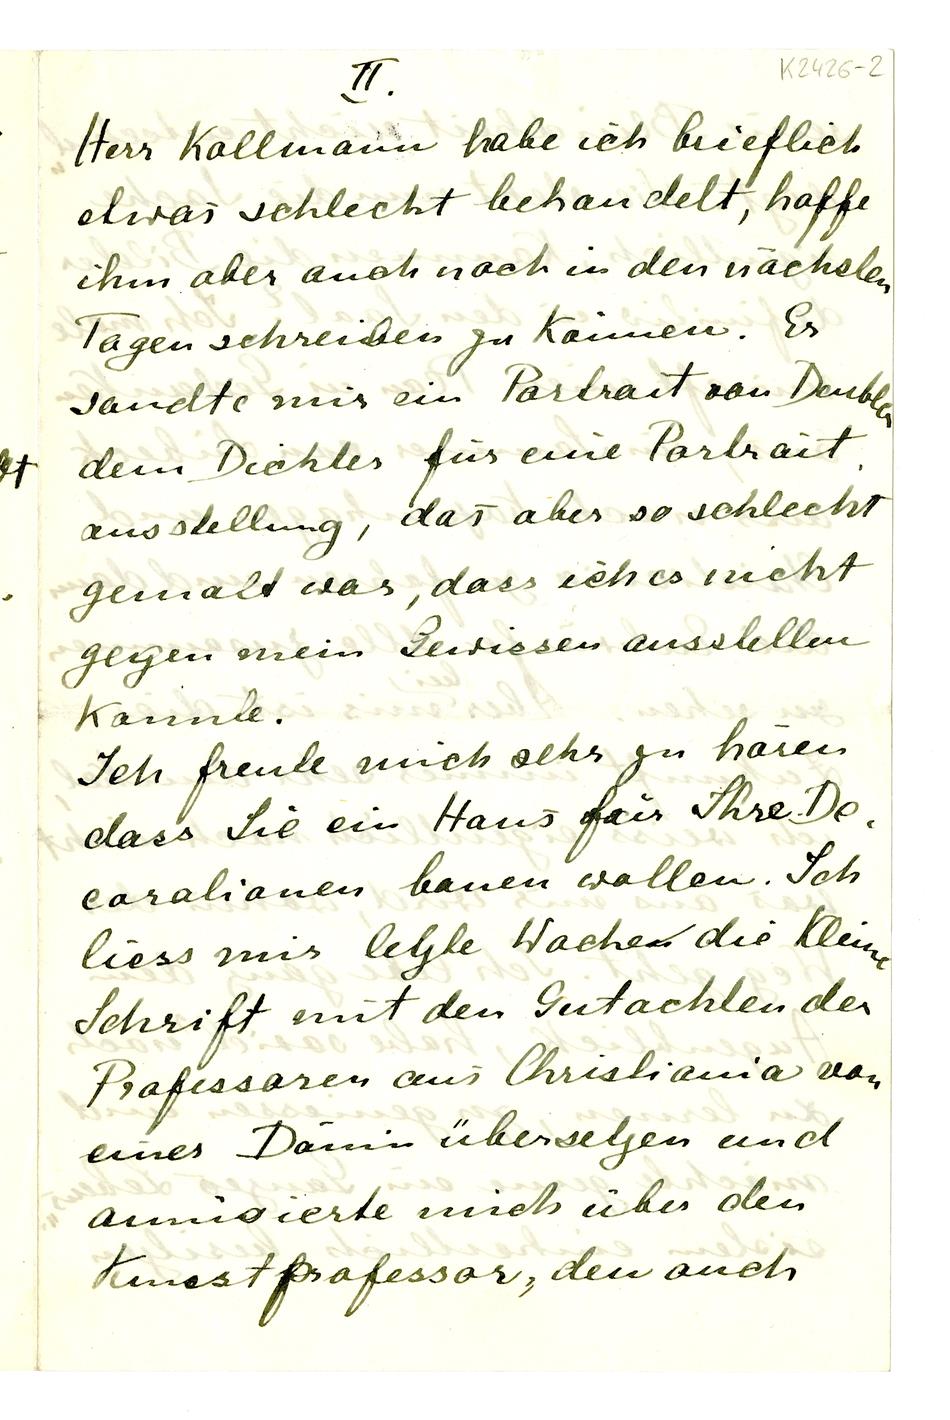 II.
K2426-2
Herr Kollmann habe ich brieflich
etwas schlecht behandelt, hoffe
ihm aber auch noch in den nächsten
Tagen schreiben zu können. Er
sandte mir ein Portrait von Deubler
dem Dichter für eine Portrait
ausstellung, das aber so schlecht
gemalt war, dass ich es nicht
gegen mein Gewissen ausstellen
konnte.
Ich freute mich sehr zu hören
dass Sie ein Haus für Ihre De.
corationen bauen wollen. Ich
liess mir letzte Woche die kleine
Schrift mit den Gutachten der
Professoren aus Christiania von
einer Dänin übersetzen und
amüsierte mich über den
Kunstprofessor, den auch